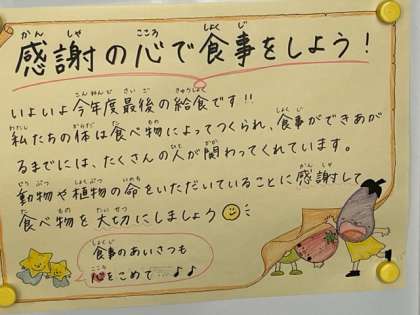 感謝の心で食事をしよう！
いよいよ今年度最後の給食です!!
私たちの体は食べ物によってつくられ、食事ができあが
るまでには、たくさんの人が関わってくれています。
動物や植物の命をいただいていることに感謝して
食べ物を大切にしましょう
食事のあいさつも
心をこめて…♪♪